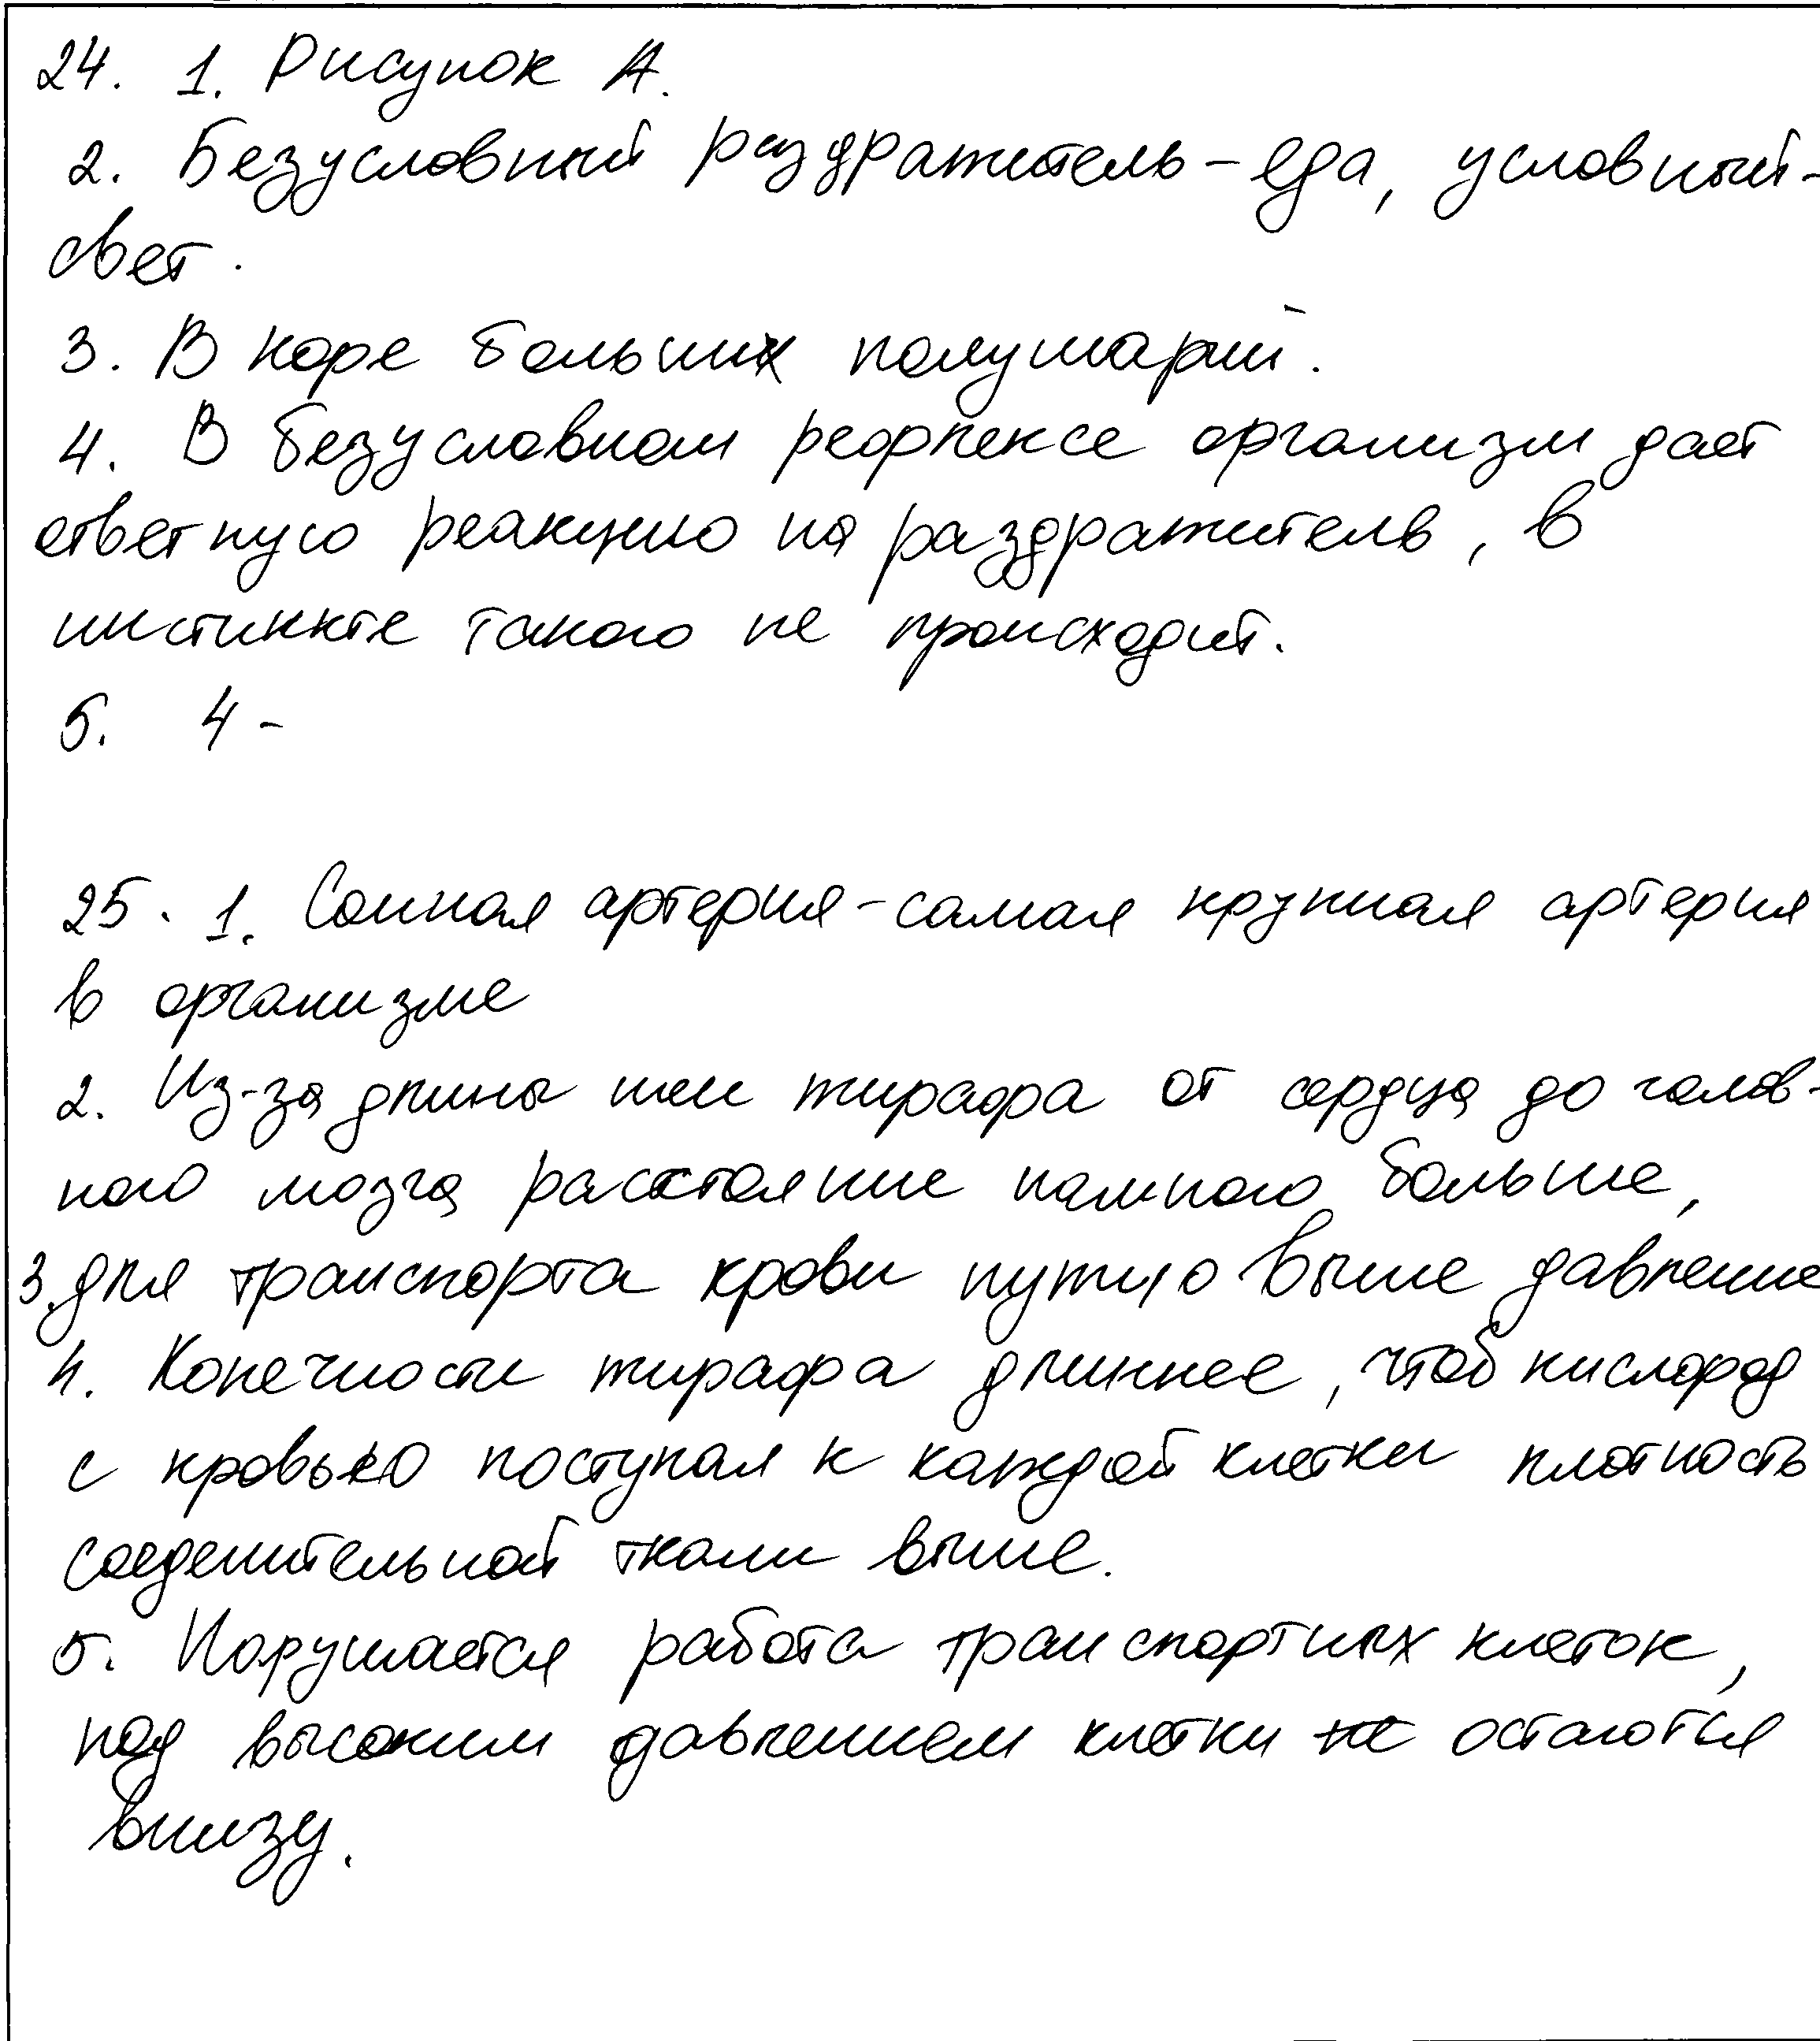 24. 1. Рисунок А.
2. Безусловный раздражитель - еда, условный -
свет.
3. В коре больших полушарий.
4. В безусловном рефлексе организм дает
ответную реакцию на раздражитель, в
инстинкте такого не происходит.
5. 4 -
25. 1. Сонная артерия - самая крупная артерия
в организме
2. Из-за длины шеи жирафа от сердца до голов-
ного мозга расстояние намного больше,
3. для транспорта крови нужно выше давление
4. Конечности жирафа длиннее, чтоб кислород
с кровью поступал к каждой клетки плотность
соеденительной ткани выше.
5. Нарушается работа транспортных клеток,
под высоким давлением клетки не остаются
внизу.